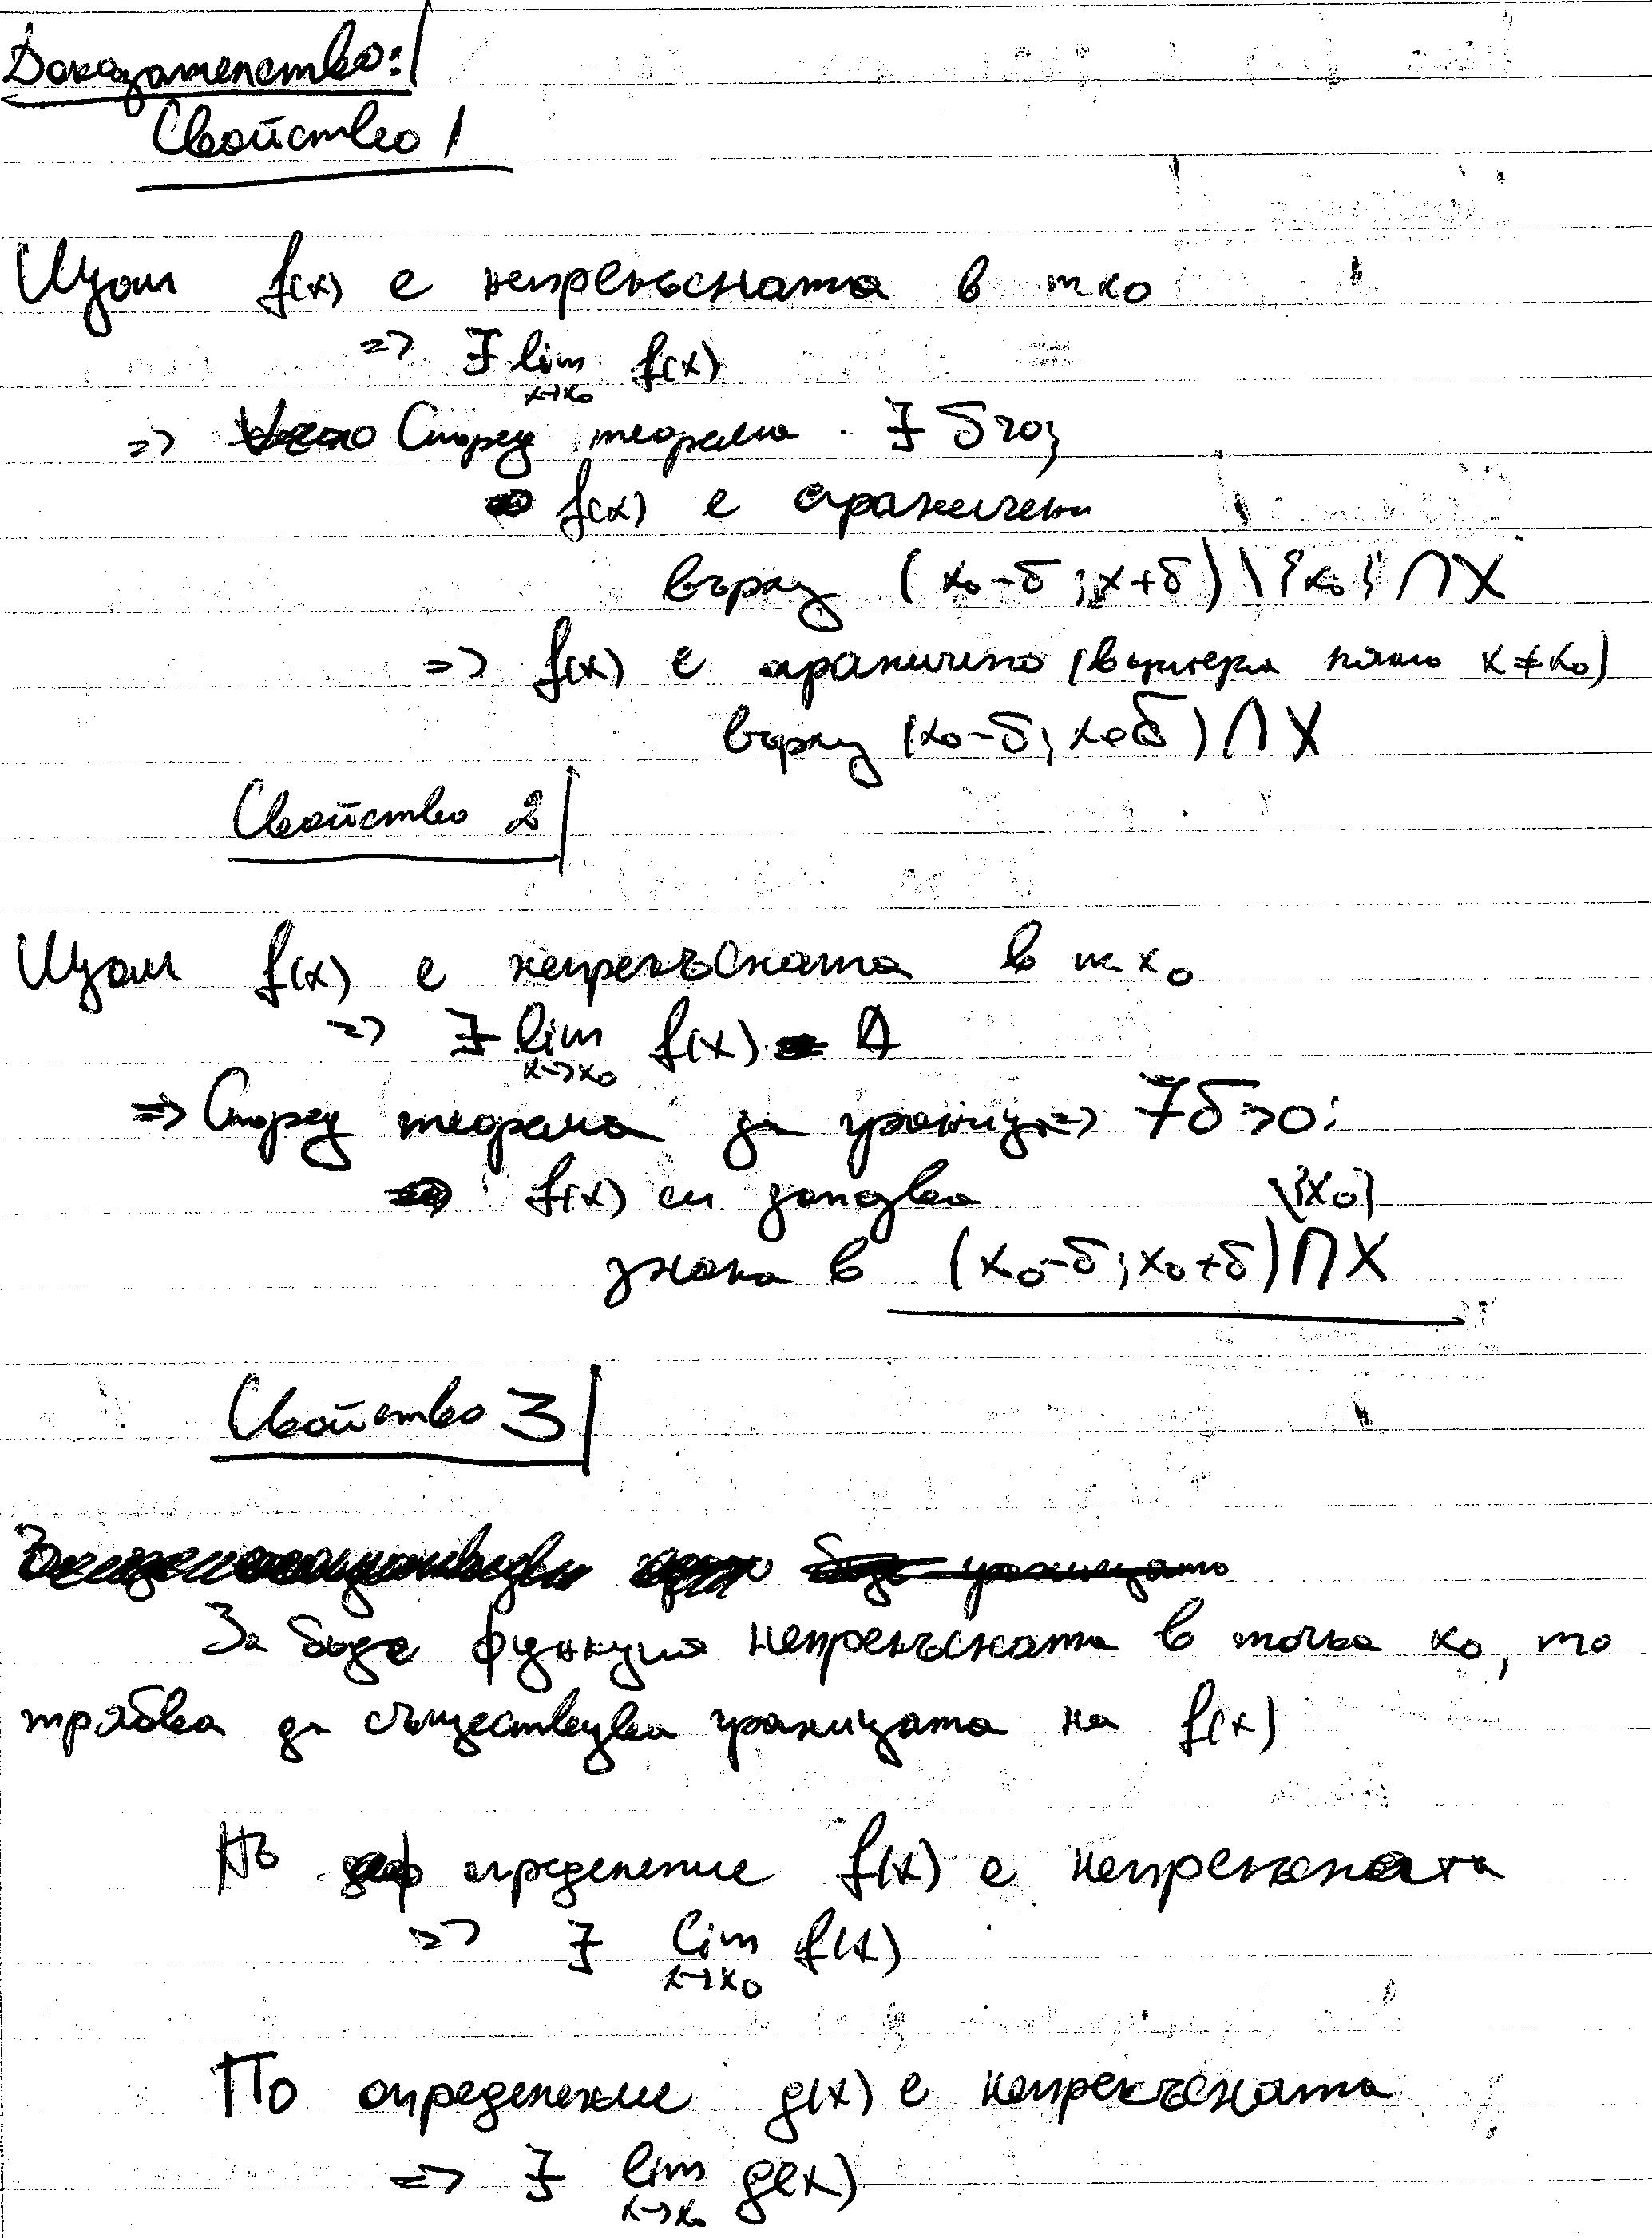 Доказателство:
Свойство 1
Щом f(x) е непрекъсната в т x₀
=> ∃ lim f(x)
x→x₀
=> Според теорема ∃ δ>0;
f(x) е ограничена
върху (x₀-δ; x+δ)\{x₀}∩X
=> f(x) е ограничено (въпреки x≠x₀)
върху (x₀-δ; x₀+δ)∩X
Свойство 2
Щом f(x) е непрекъсната в т. x₀
=> ∃ lim f(x) = A
x→x₀
=> Според теорема за граници => ∃δ>0:
f(x) си запазва \{x₀}
знака в (x₀-δ; x₀+δ)∩X
Свойство 3
За бъде функция непрекъсната в точка x₀, то
трябва да съществува границата на f(x)
По определение f(x) е непрекъсната
=> ∃ lim f(x)
x→x₀
По определение g(x) е непрекъсната
=> ∃ lim g(x)
x→x₀